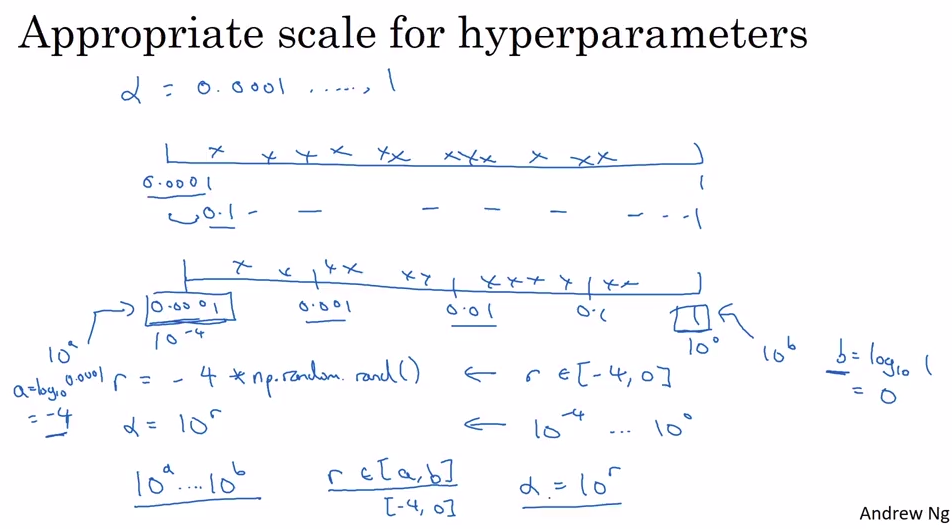 Appropriate scale for hyperparameters
α = 0.0001 ....., 1
0.0001 1
0.1 - - - - - - . . - 1
0.0001 0.001 0.01 0.1 1
10^a 10^-4 10^0 10^b
a = log₁₀ 0.0001
= -4
r = - 4 * np.random.rand() ← r ∈ [-4, 0]
b = log₁₀ 1
= 0
α = 10^r ← 10^-4 ... 10^0
10^a .... 10^b r ∈ [a, b] α = 10^r
[-4, 0]
Andrew Ng